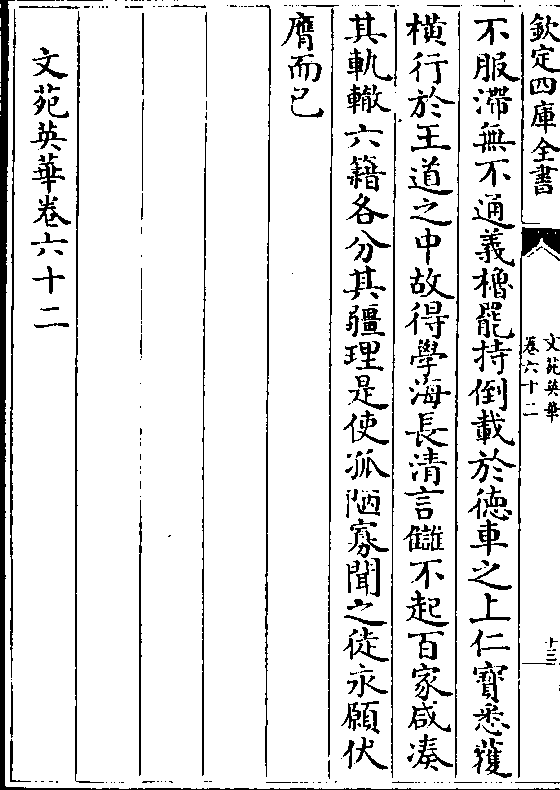 欽定四庫全書
文苑英華
卷六十二
十三
不服滯無不通義櫓罷持倒載於德車之上仁寶悉獲
橫行於王道之中故得學海長清言讎不起百家咸凑
其軌轍六籍各分其疆理是使孤陋寡聞之徒永願伏
膺而已
文苑英華卷六十二